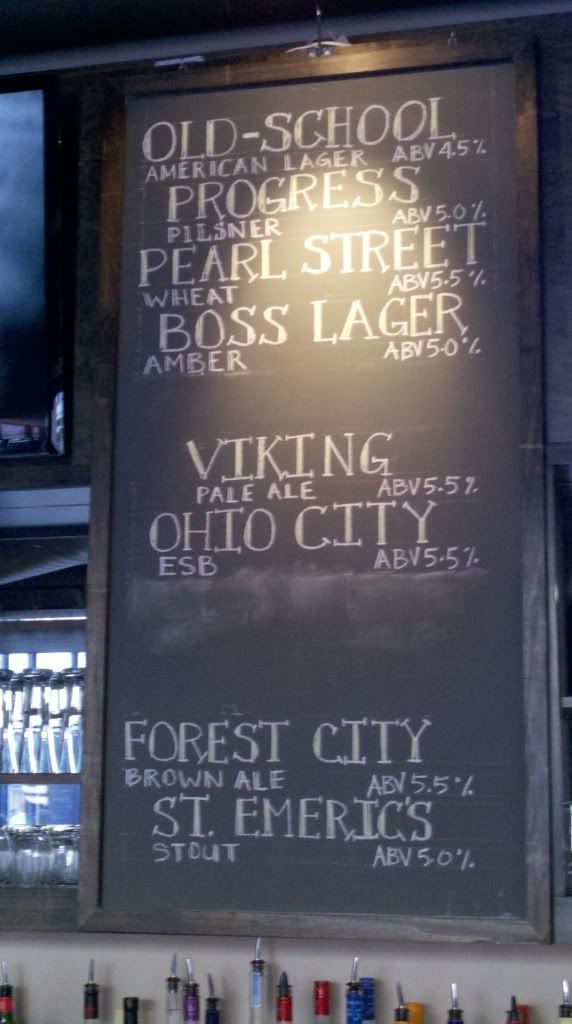 OLD-SCHOOL
AMERICAN LAGER ABV 4.5%
PROGRESS
PILSNER ABV 5.0%
PEARL STREET
WHEAT ABV 5.5%
BOSS LAGER
AMBER ABV 5.0%
VIKING
PALE ALE ABV 5.5%
OHIO CITY
ESB ABV 5.5%
FOREST CITY
BROWN ALE ABV 5.5%
ST. EMERIC'S
STOUT ABV 5.0%